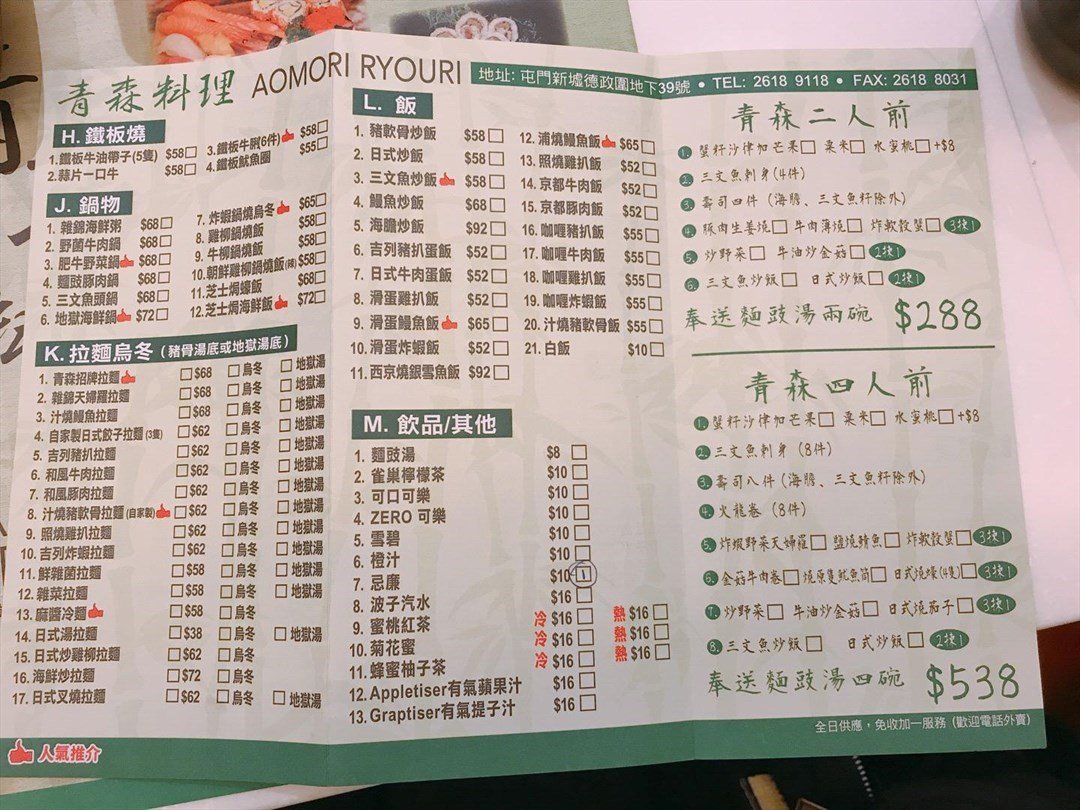 青森料理 AOMORI RYOURI
地址: 屯門新墟德政圍地下39號 • TEL: 2618 9118 • FAX: 2618 8031
H. 鐵板燒
1. 鐵板牛油帶子(5隻) $58
2. 蒜片一口牛 $58
3. 鐵板牛脷(6件) $58
4. 鐵板魷魚圈 $55
J. 鍋物
1. 雜錦海鮮粥 $68
2. 野菌牛肉鍋 $68
3. 肥牛野菜鍋 $68
4. 麵豉豚肉鍋 $68
5. 三文魚頭鍋 $68
6. 地獄海鮮鍋 $72
7. 炸蝦鍋燒烏冬 $65
8. 雞柳鍋燒飯 $58
9. 牛柳鍋燒飯 $58
10. 朝鮮雞柳鍋燒飯(辣) $58
11. 芝士焗蠔飯 $68
12. 芝士焗海鮮飯 $72
K. 拉麵烏冬 (豬骨湯底或地獄湯底)
1. 青森招牌拉麵 $68 烏冬 地獄湯
2. 雜錦天婦羅拉麵 $68 烏冬 地獄湯
3. 汁燒鰻魚拉麵 $68 烏冬 地獄湯
4. 自家製日式餃子拉麵 (3隻) $62 烏冬 地獄湯
5. 吉列豬扒拉麵 $62 烏冬 地獄湯
6. 和風牛肉拉麵 $62 烏冬 地獄湯
7. 和風豚肉拉麵 $62 烏冬 地獄湯
8. 汁燒豬軟骨拉麵 (自家製) $62 烏冬 地獄湯
9. 照燒雞扒拉麵 $62 烏冬 地獄湯
10. 吉列炸蝦拉麵 $62 烏冬 地獄湯
11. 鮮雜菌拉麵 $58 烏冬 地獄湯
12. 雜菜拉麵 $58 烏冬 地獄湯
13. 麻醬冷麵 $58 烏冬
14. 日式湯拉麵 $38 烏冬 地獄湯
15. 日式炒雞柳拉麵 $62 烏冬
16. 海鮮炒拉麵 $72 烏冬
17. 日式叉燒拉麵 $62 烏冬 地獄湯
人氣推介
L. 飯
1. 豬軟骨炒飯 $58
2. 日式炒飯 $58
3. 三文魚炒飯 $58
4. 鰻魚炒飯 $68
5. 海膽炒飯 $92
6. 吉列豬扒蛋飯 $52
7. 日式牛肉蛋飯 $52
8. 滑蛋雞扒飯 $52
9. 滑蛋鰻魚飯 $65
10. 滑蛋炸蝦飯 $52
11. 西京燒銀雪魚飯 $92
12. 浦燒鰻魚飯 $65
13. 照燒雞扒飯 $52
14. 京都牛肉飯 $52
15. 京都豚肉飯 $52
16. 咖喱豬扒飯 $55
17. 咖喱牛肉飯 $55
18. 咖喱雞扒飯 $55
19. 咖喱炸蝦飯 $55
20. 汁燒豬軟骨飯 $55
21. 白飯 $10
M. 飲品/其他
1. 麵豉湯 $8
2. 雀巢檸檬茶 $10
3. 可口可樂 $10
4. ZERO 可樂 $10
5. 雪碧 $10
6. 橙汁 $10
7. 忌廉 $10 1
8. 波子汽水 $16
9. 蜜桃紅茶 冷 $16 熱 $16
10. 菊花蜜 冷 $16 熱 $16
11. 蜂蜜柚子茶 冷 $16 熱 $16
12. Appletiser有氣蘋果汁 $16
13. Graptiser有氣提子汁 $16
青森二人前
1. 蟹籽沙律加芒果 粟米 水蜜桃 +$8
2. 三文魚刺身(4件)
3. 壽司四件 (海膽、三文魚籽除外)
4. 豚肉生姜燒 牛肉薄燒 炸軟殼蟹 3揀1
5. 炒野菜 牛油炒金菇 2揀1
6. 三文魚炒飯 日式炒飯 2揀1
奉送麵豉湯兩碗 $288
青森四人前
1. 蟹籽沙律加芒果 粟米 水蜜桃 +$8
2. 三文魚刺身 (8件)
3. 壽司八件 (海膽、三文魚籽除外)
4. 火龍卷 (8件)
5. 炸蝦野菜天婦羅 鹽燒鯖魚 炸軟殼蟹 3揀1
6. 金菇牛肉卷 燒原隻魷魚筒 日式燒蠔(4隻) 3揀1
7. 炒野菜 牛油炒金菇 日式燒茄子 3揀1
8. 三文魚炒飯 日式炒飯 2揀1
奉送麵豉湯四碗 $538
全日供應，免收加一服務 (歡迎電話外賣)